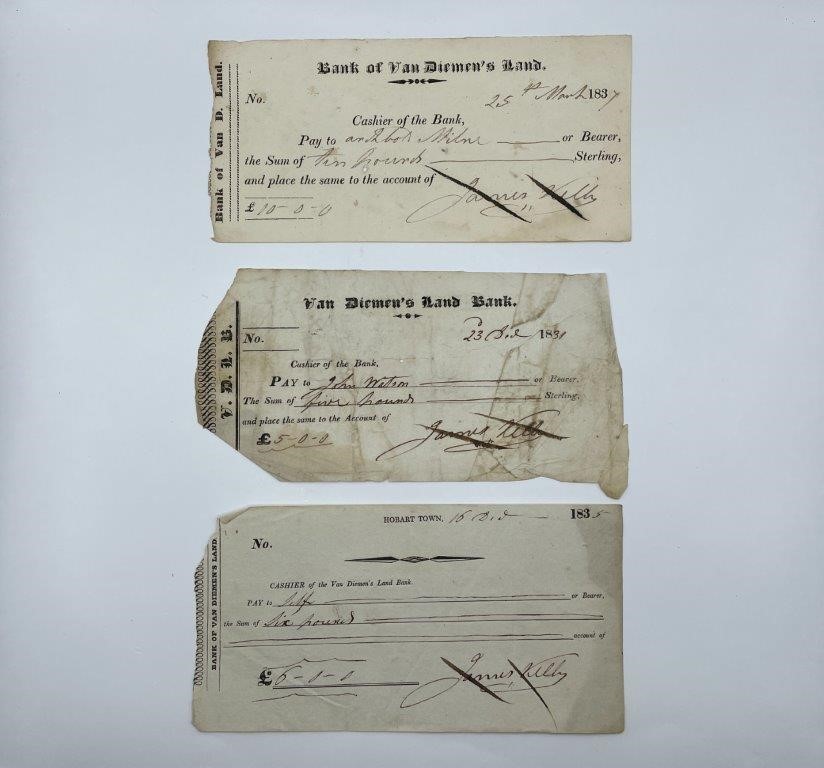 Bank of Van D. Land.
Bank of Van Diemen's Land.
No.
25th March 1837
Cashier of the Bank,
Pay to Milne or Bearer,
the Sum of ten pounds Sterling,
and place the same to the account of
£ 10-0-0
James Kelly
V. D. L. B.
Van Diemen's Land Bank.
No.
23 Dec 1831
Cashier of the Bank,
PAY to John Watson or Bearer,
The Sum of five pounds Sterling,
and place the same to the Account of
£ 5-0-0
James Kelly
BANK OF VAN DIEMEN'S LAND
HOBART TOWN, 16 Dec 1835
No.
CASHIER of the Van Diemen's Land Bank.
PAY to Self or Bearer,
the Sum of Six pounds
account of
£ 6-0-0
James Kelly